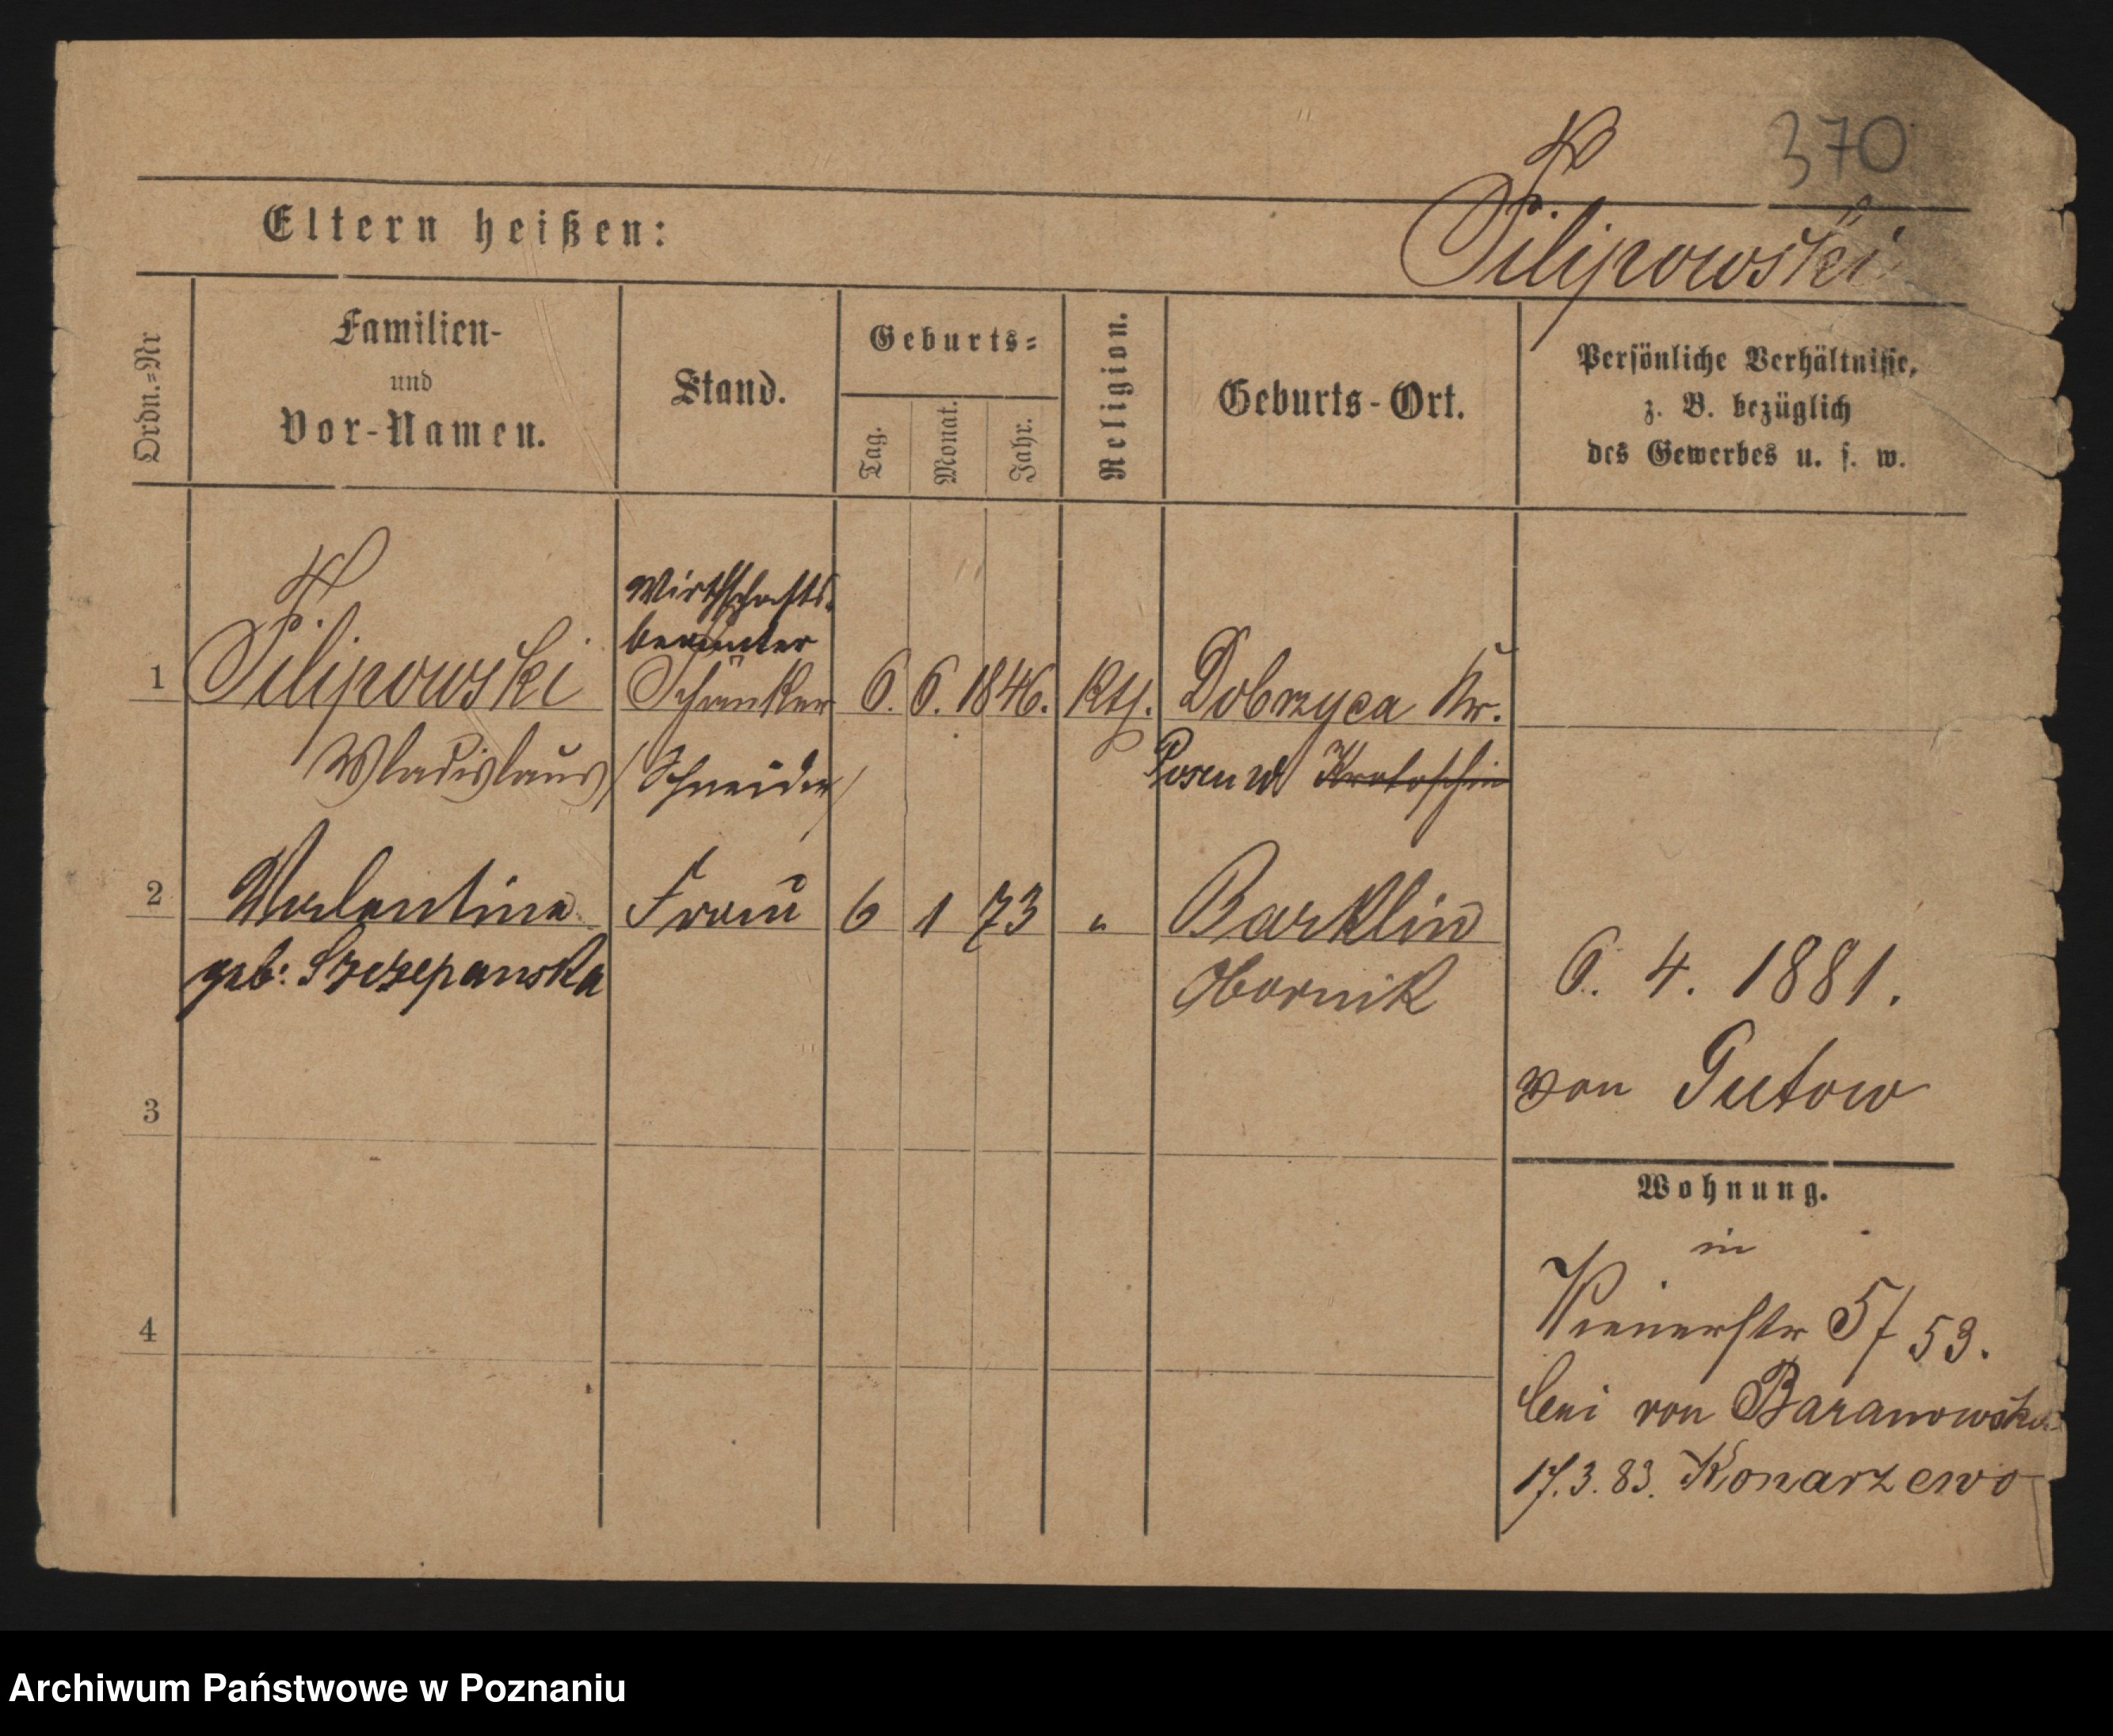 370
Filipowski
Eltern heißen:
Ordn.=Nr
Familien-
und
Vor-Namen.
Stand.
Geburts=
Tag.
Monat.
Jahr.
Religion.
Geburts-Ort.
Persönliche Verhältnisse,
z. B. bezüglich
des Gewerbes u. s. w.
Wirthschafts-
beamter
1 Filipowski Schänker 6. 6. 1846. Kth. Dobrzyca Kr.
Wladislaus (Schneider) Posen W Krotoschin
2 Valentine Frau 6 1 73 " Barklin
geb: Szczepanska Obornik
6. 4. 1881.
von Gutow
3
Wohnung.
in
4 Wienerstr 5/53.
bei von Baranowski
17.3.83. Konarzewo
Archiwum Państwowe w Poznaniu